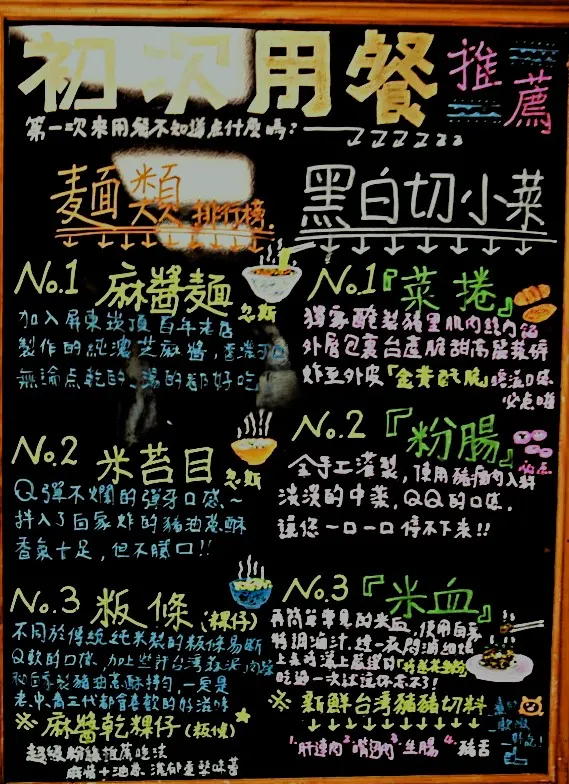 初次用餐 推薦
第一次來用餐不知道点什麼嗎?
麵類 排行榜
No.1 麻醬麵 忽斯
加入屏東崁頂百年老店
製作的純濃芝麻醬,
無論点乾的、湯的都好吃
No.2 米苔目 忽斯
Q彈不爛的彈牙口感~
拌入了自家炸的豬油蔥酥
香氣十足,但不膩口!!
No.3 粄條 (粿仔)
不同於傳統純米製的粄條易斷
Q軟的口感、加上些許台灣
秘自手製豬油蔥酥拌勻,一定是
老、中、青三代都會喜歡的好滋味
※麻醬乾粿仔(粄條)
超級粉絲推薦吃法
麻醬+油蔥 濃郁
黑白切小菜
No.1『菜捲』
獨家醃製豬里肌肉
外層包裹台產脆甜高麗菜
炸至外皮「金黃酥脆」 口感
必点喔
No.2『粉腸』
全手工灌製,使用豬瘦肉入料
淡淡的中藥,QQ的口感,
讓您一口一口停不下來!!
No.3『米血』
再簡單常見的米血,使用自家
特調滷汁,
上桌時淋上
吃過一次
※新鮮台灣豬豬切料
1.肝連肉 2.嘴邊肉 3.生腸 4.豬舌